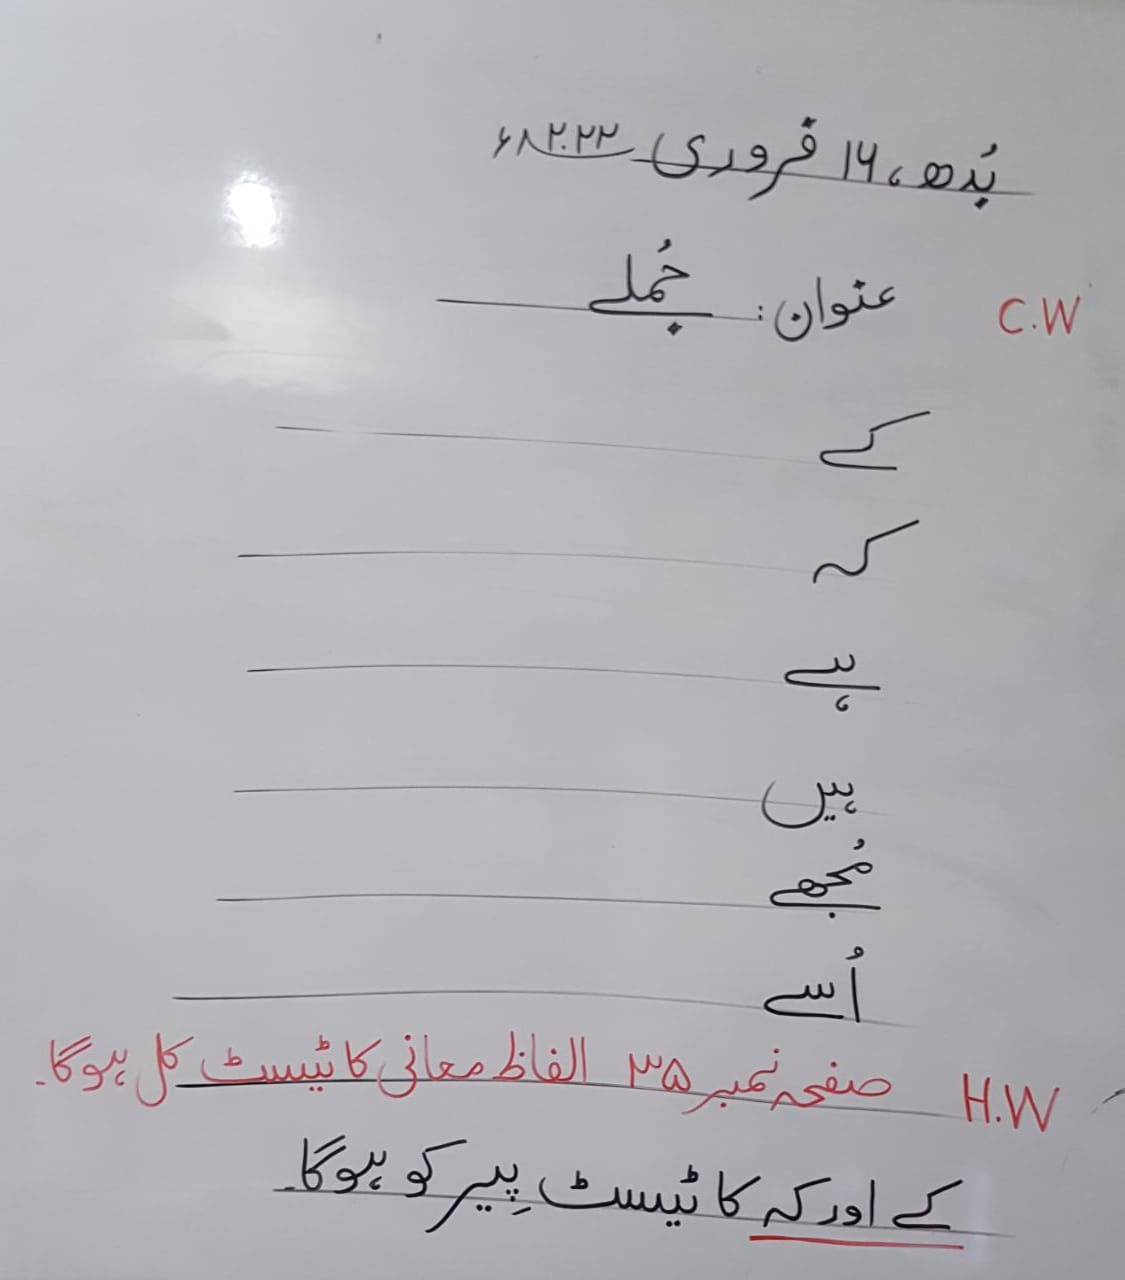 بُدھ، ۱۶ فروری ۲۰۲۲ء
C.W عنوان: جُملے
کے
کہ
ہے
ہیں
مُجھے
اُسے
H.W صفحہ نمبر ۳۵ الفاظ معانی کا ٹیسٹ کل ہوگا۔
کے اور کہ کا ٹیسٹ پِیر کو ہوگا۔